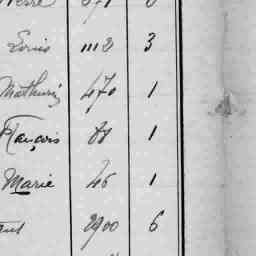 Louis 1112 3
Mathurin 470 1
François 88 1
Marie 46 1
2900 6